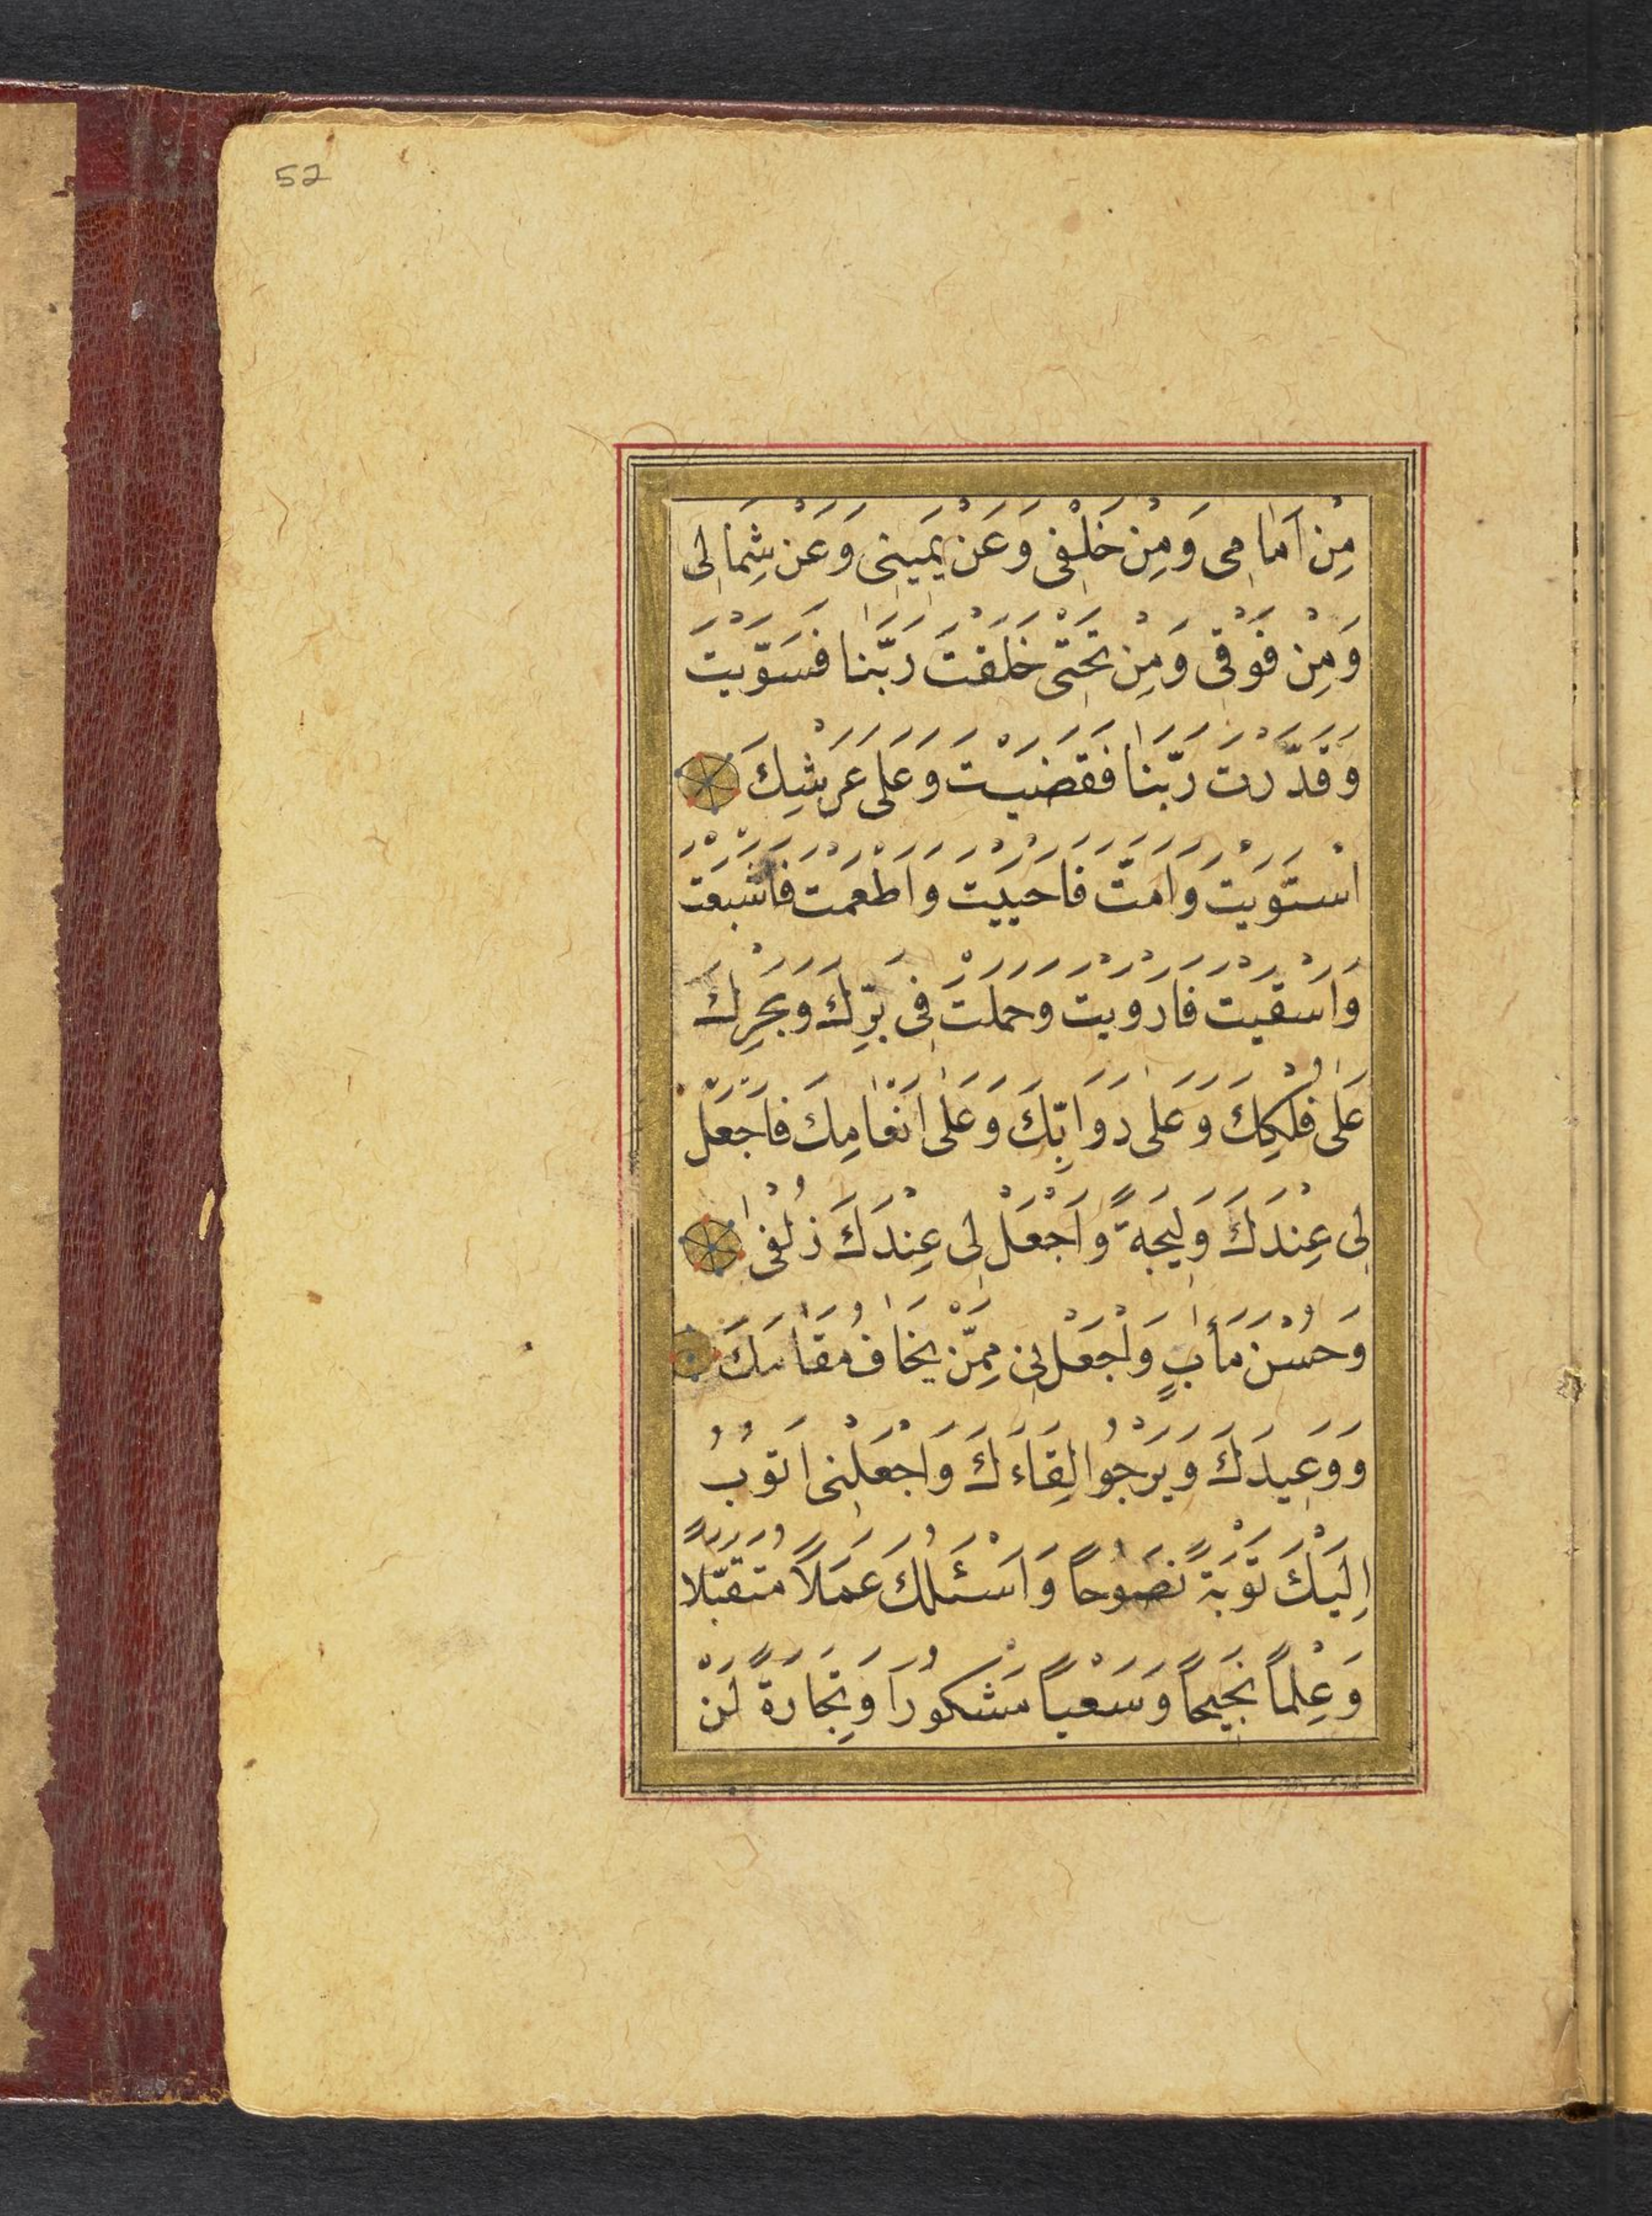 52
مِنْ اَمَامِى وَمِنْ خَلْفِى وَعَنْ يَمِينِى وَعَنْ شِمَالِى
وَمِنْ فَوْقِى وَمِنْ تَحْتِى خَلَقْتَ رَبَّنَا فَسَوَّيْتَ
وَقَدَّرْتَ رَبَّنَا فَقَضَيْتَ وَعَلَى عَرْشِكَ
اسْتَوَيْتَ وَاَمَتَّ فَاَحْيَيْتَ وَاَطْعَمْتَ فَاَشْبَعْتَ
وَاَسْقَيْتَ فَاَرْوَيْتَ وَحَمَلْتَ فِى بَرِّكَ وَبَحْرِكَ
عَلَى فُلْكِكَ وَعَلَى دَوَابِّكَ وَعَلَى اَنْعَامِكَ فَاجْعَلْ
لِى عِنْدَكَ وَلِيجَةً وَاجْعَلْ لِى عِنْدَكَ زُلْفَى
وَحُسْنَ مَأَبٍ وَاجْعَلْنِى مِمَّنْ يَخَافُ مَقَامَكَ
وَوَعِيدَكَ وَيَرْجُوا لِقَاءَكَ وَاجْعَلْنِى اَتُوبُ
اِلَيْكَ تَوْبَةً نَصُوحاً وَاَسْئَلُكَ عَمَلاً مُتَقَبَّلاً
وَعِلْماً نَجِيحاً وَسَعْياً مَشْكُوراً وَتِجَارَةً لَنْ